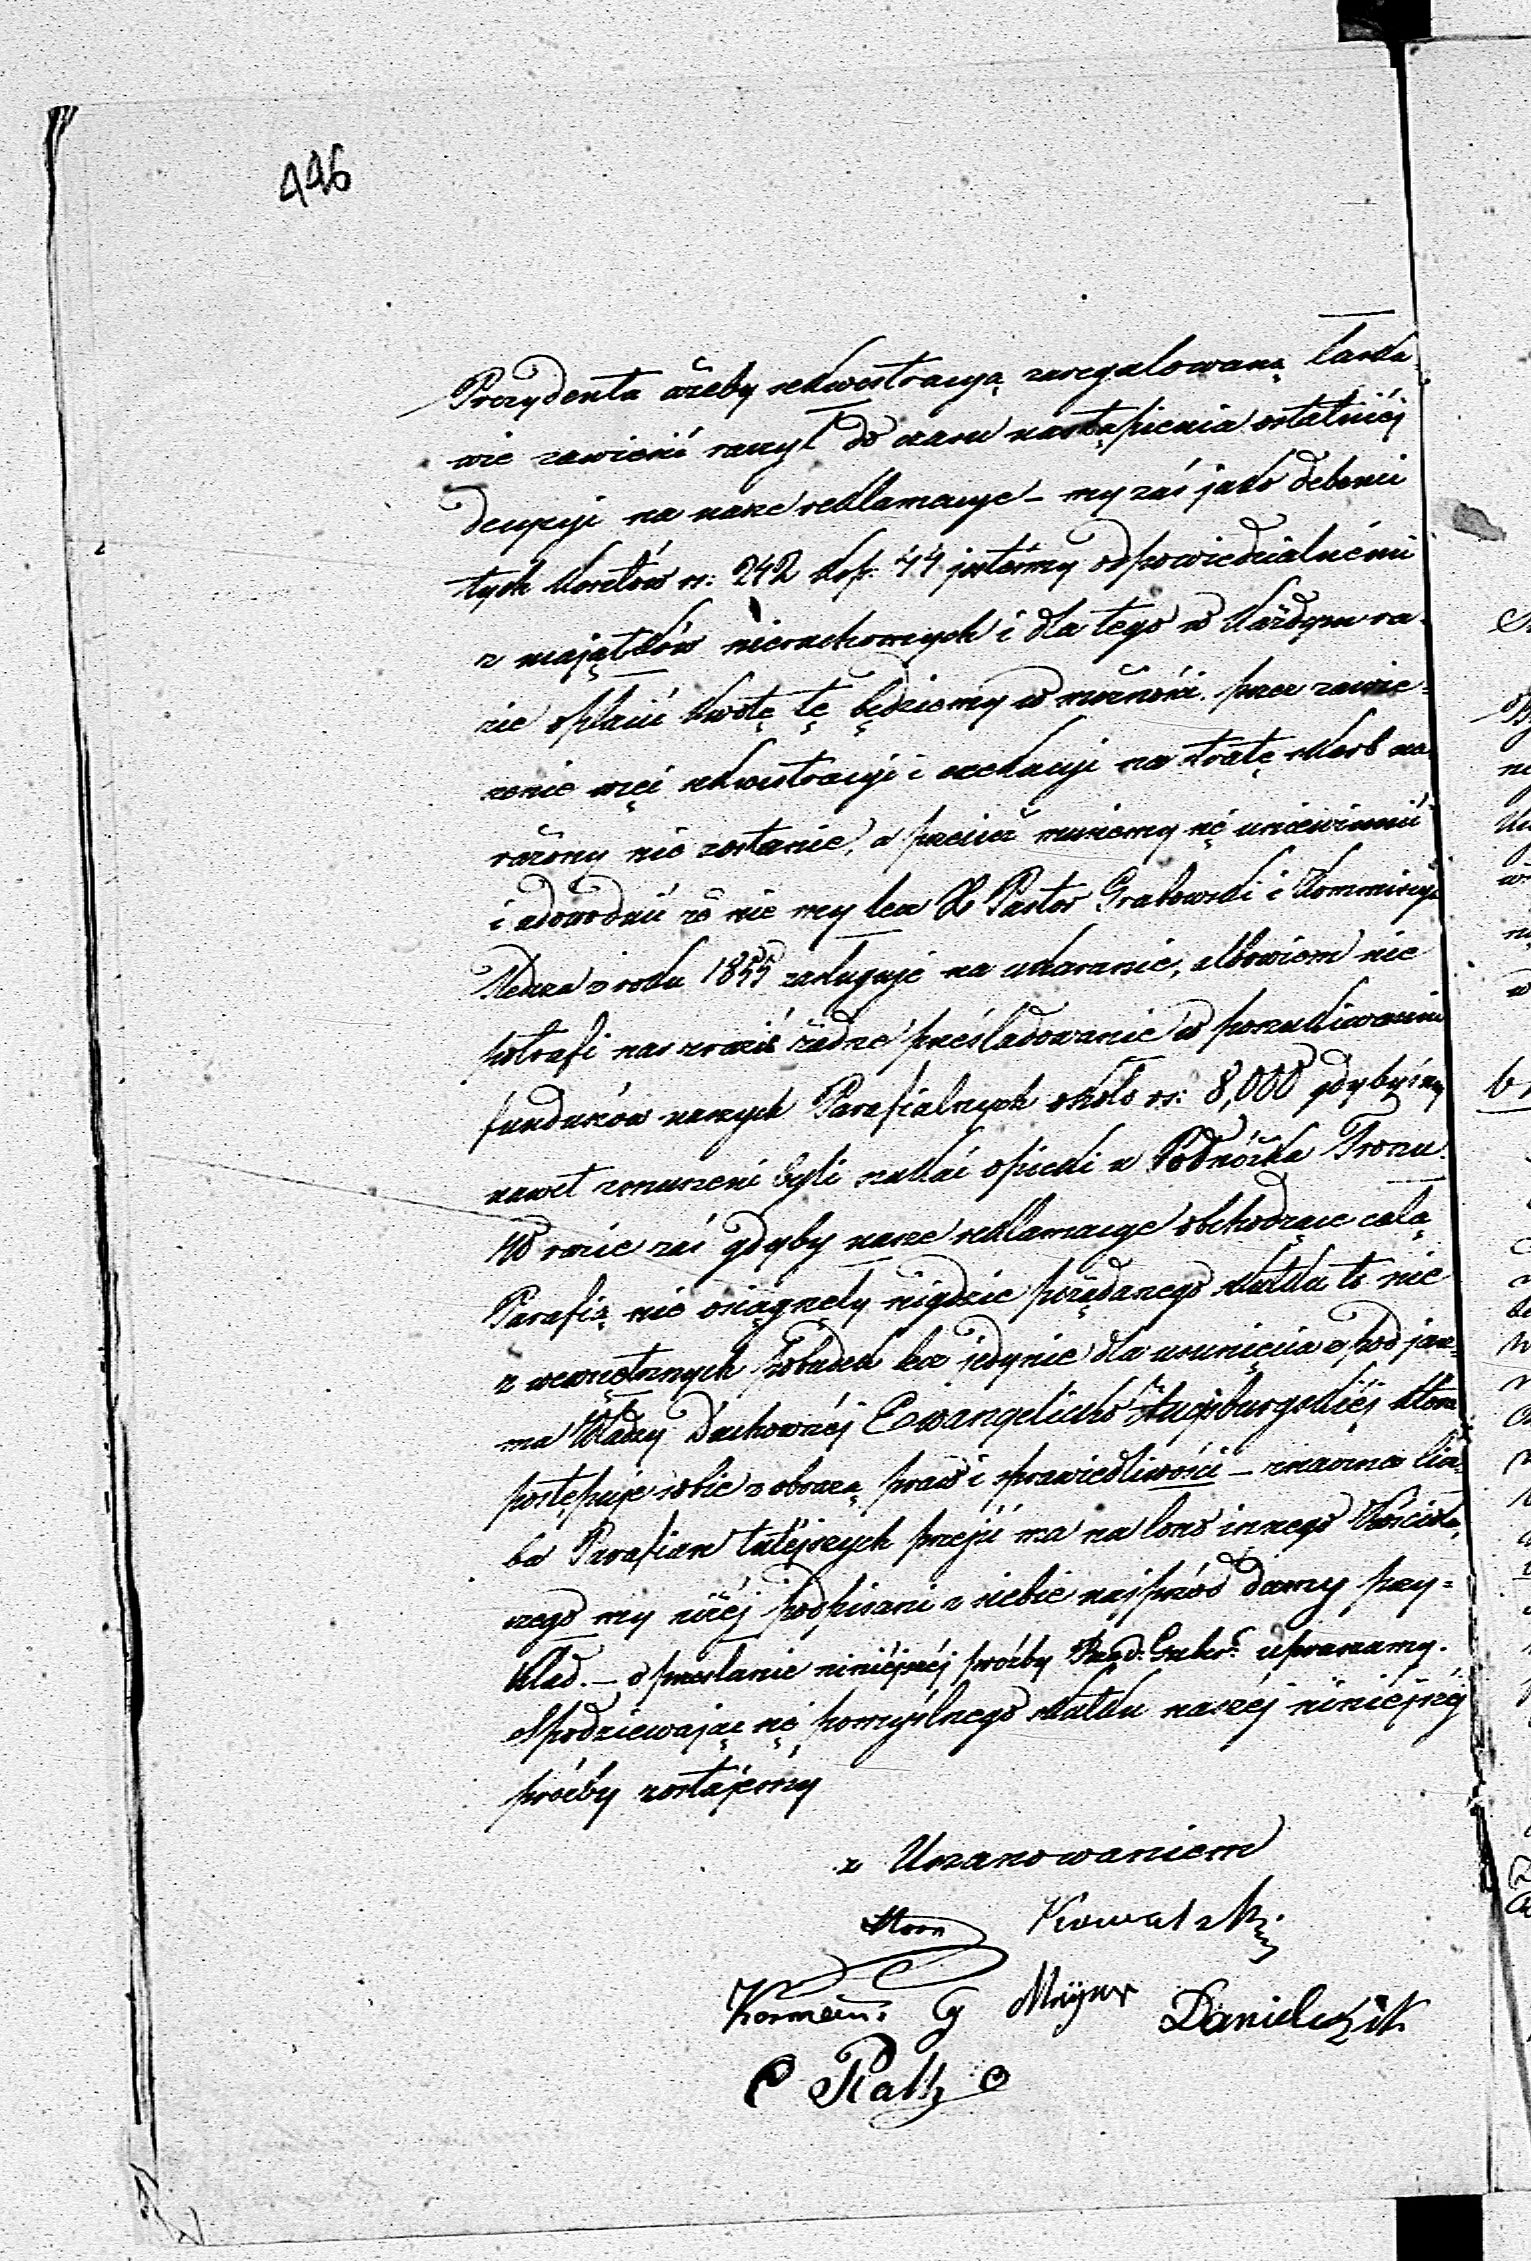 446
Prezydenta ażeby sekwestracyą zaregulowaną łaska
wie zawiesić raczył do czasu nastąpienia ostatniéj
decyzyi na nasze reklamacye – my zaś jako debenci
tych kosztów rs: 242 kop. 44 jesteśmy odpowiedzialnémi
z majątków nieruchomych i dla tego w każdym ra-
zie opłacić kwotę tę będziemy w możności, przez zawie-
szenie więc sekwestracyi i exekucyi na stratę skarb na-
rażony nie zostanie, a przecież musiemy się uniewinnić
i udowodnić że nie my lecz X Pastor Grabowski i Kommissya
Śledcza z roku 1855 zasługuje na ukaranie, albowiem nie
potrafi nas zrazić żadne prześladowanie w poszukiwaniu
funduszów naszych Parafialnych około rs: 8,000 gdybyśmy
nawet zmuszeni byli szukać opieki u Podnóżka Tronu.
W razie zaś gdyby nasze reklamacye obchodzące całą
Parafią nie osiągnęły nigdzie pożądanego skutku to nie
z wewnętrznych pobudek lecz jedynie dla usunięcia z pod jarz-
ma Władzy Duchownéj Ewangelicko Augsburgskiéj która
postępuje sobie z obrazą praw i sprawiedliwości – znaczna licz-
ba Parafian tutéjszych przejść ma na łono innego Kościoła,
czego my niżéj podpisani z siebie najprzód damy przy-
kład. – o przesłanie niniéjszéj proźby Rząd. Guber: upraszamy.
Spodziewając się pomyślnego skutku naszéj niniejszéj
proźby zostajemy
z Uszanowaniem
Kowalski
Mayer Danielczik
Ratz